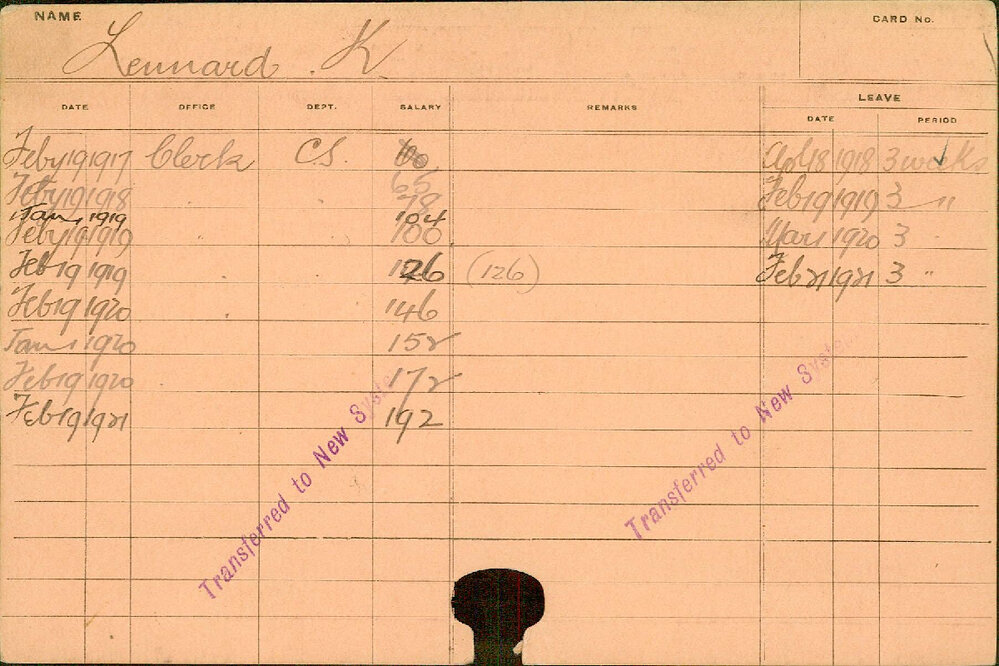 NAME
CARD No.
Lennard . K
DATE OFFICE DEPT. SALARY REMARKS LEAVE
DATE PERIOD
Feby 19 1917 Clerk CS. 60 Apl 8 1918 3 weeks
Feby 19 1918 78 Feb 19 1919 3 "
Jan 1 1919 104
Feby 19 1919 100 Mar 1 1920 3
Feb 19 1919 126 (126) Feb 21 1921 3 "
Feb 19 1920 146
Jan 1 1920 152
Feb 19 1920 172
Feb 19 1921 192
Transferred to New System
Transferred to New System